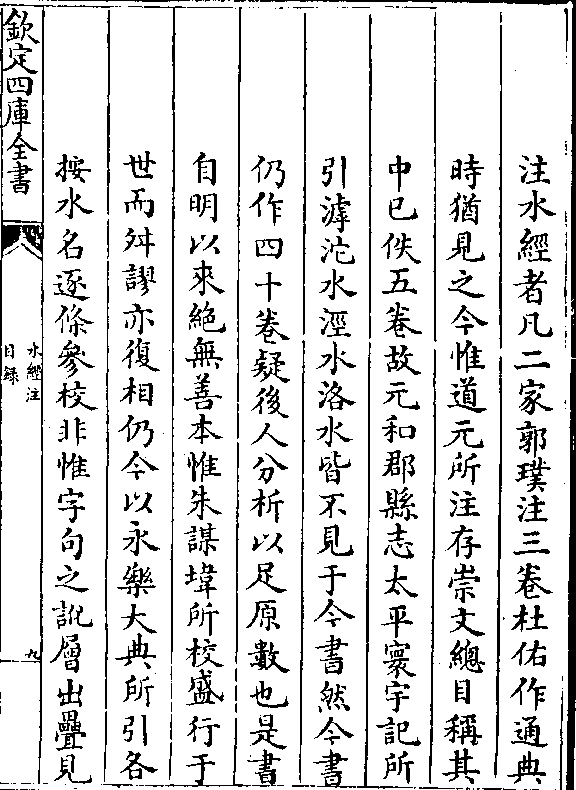 注水經者凡二家郭璞注三卷杜佑作通典
時猶見之今惟道元所注存崇文總目稱其
中已佚五卷故元和郡縣志太平寰宇記所
引滹沱水涇水洛水皆不見于今書然今書
仍作四十卷疑後人分析以足原數也是書
自明以來絕無善本惟朱謀㙔所校盛行于
世而舛謬亦復相仍今以永樂大典所引各
按水名逐條參校非惟字句之訛層出疊見
欽定四庫全書
水經注
目録
九